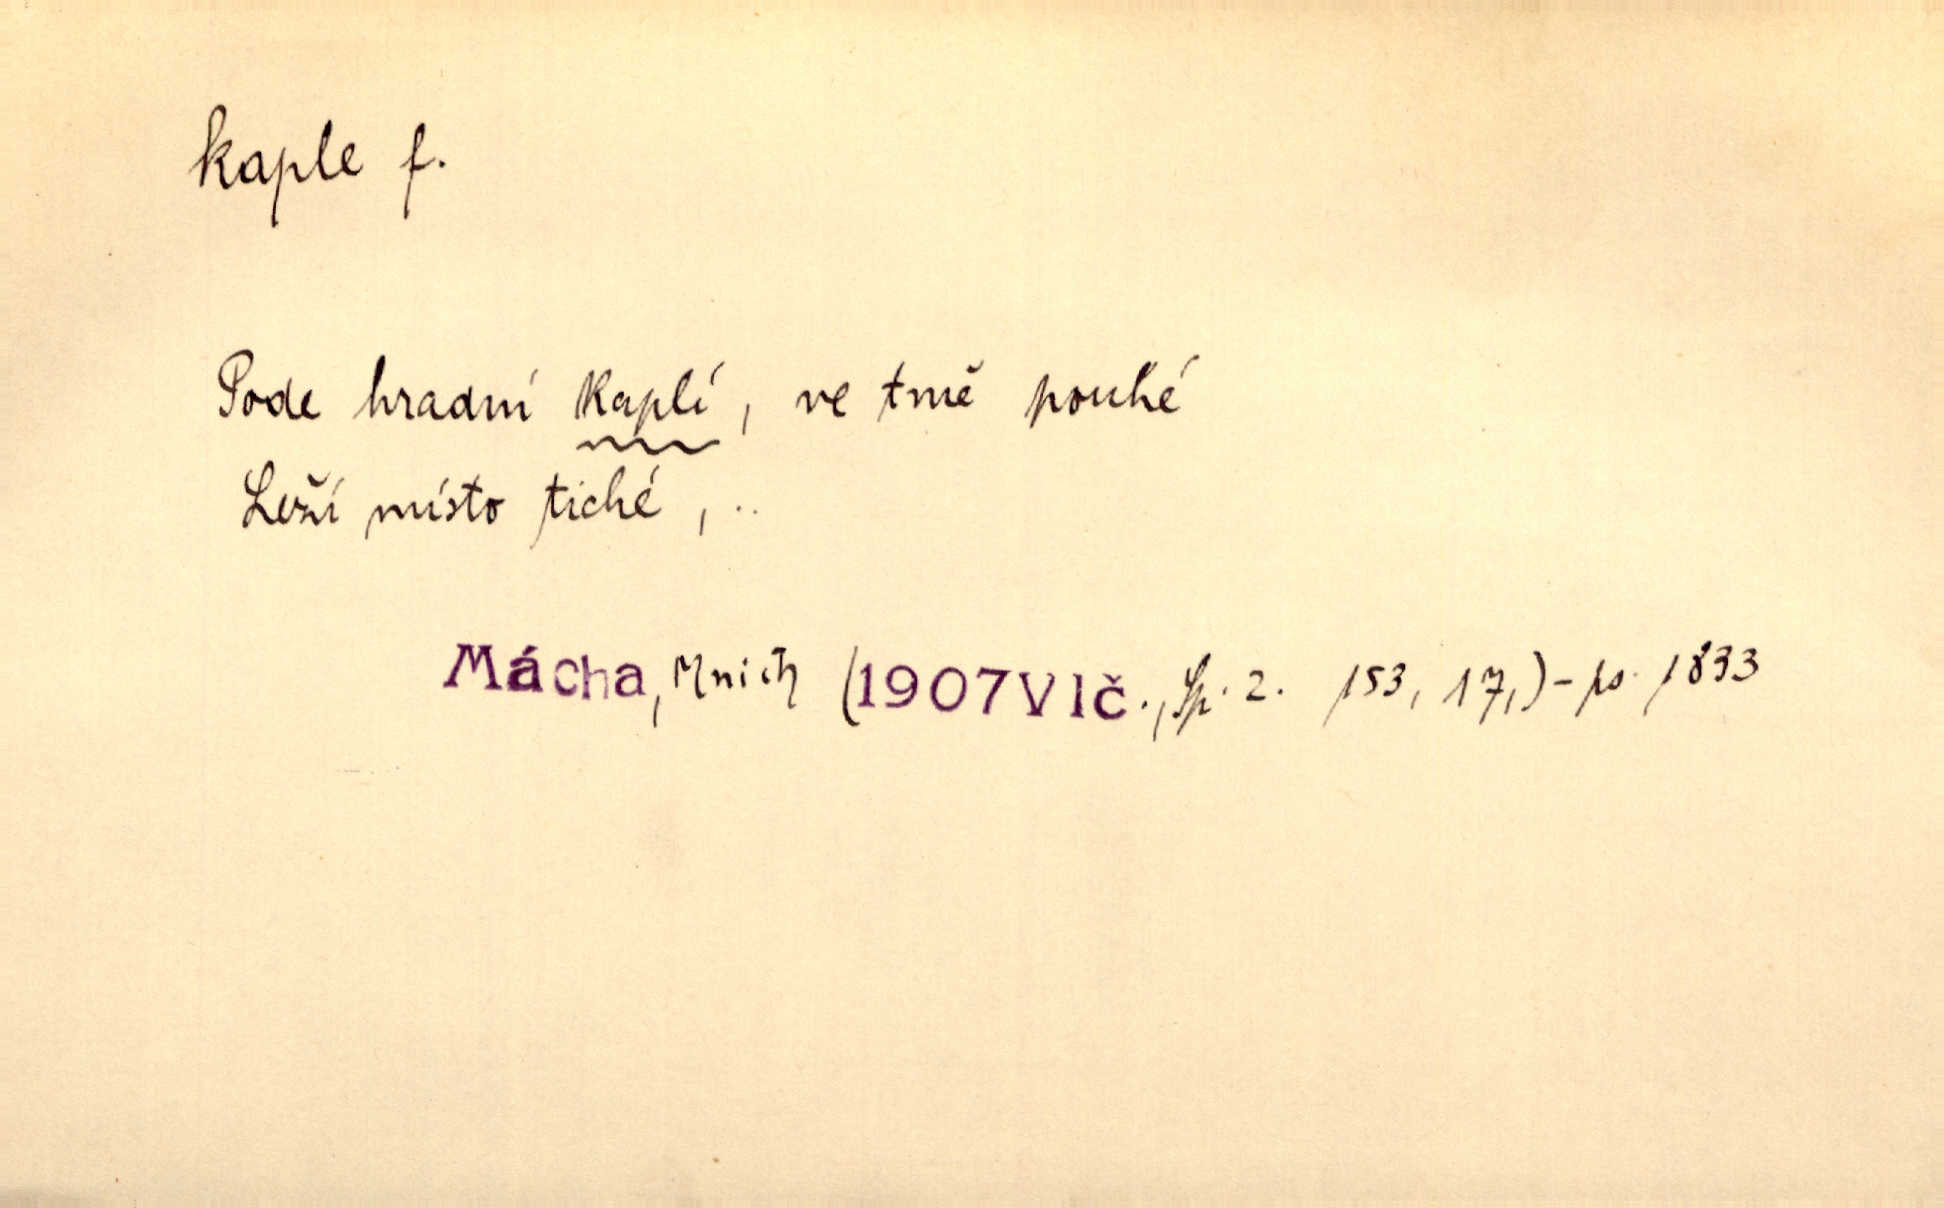 kaple f.
Pode hradní kaplí, ve tmě pouhé
Leží místo tiché, ..
Mácha, Mnich (1907Vlč., Sp. 2. 153, 17,) - ps. 1833